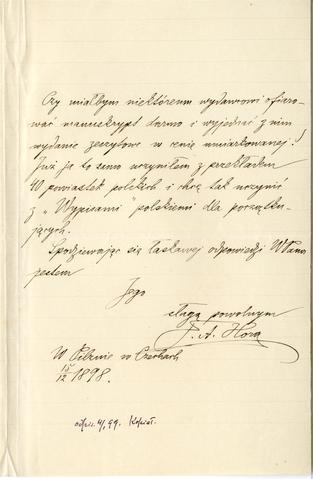 Czy miałbym niektórem wydawcowi ofiaro-
wać manuskrypt darmo i wyjednać z nim
wydanie zeszytowe w cenie umiarkowanej?
Już ja to samo uczyniłem z przekładem
40 powiastek polskich i chcę tak uczynić
z „Wypisami" polskiemi dla początku-
jących.
Spodziewając się łaskawej odpowiedzi WPana
jestem
Jego
sługą powolnym
F. A. Hora
W Pilznie w Czechach
15/12 1898.
odpis. 4/1 99.